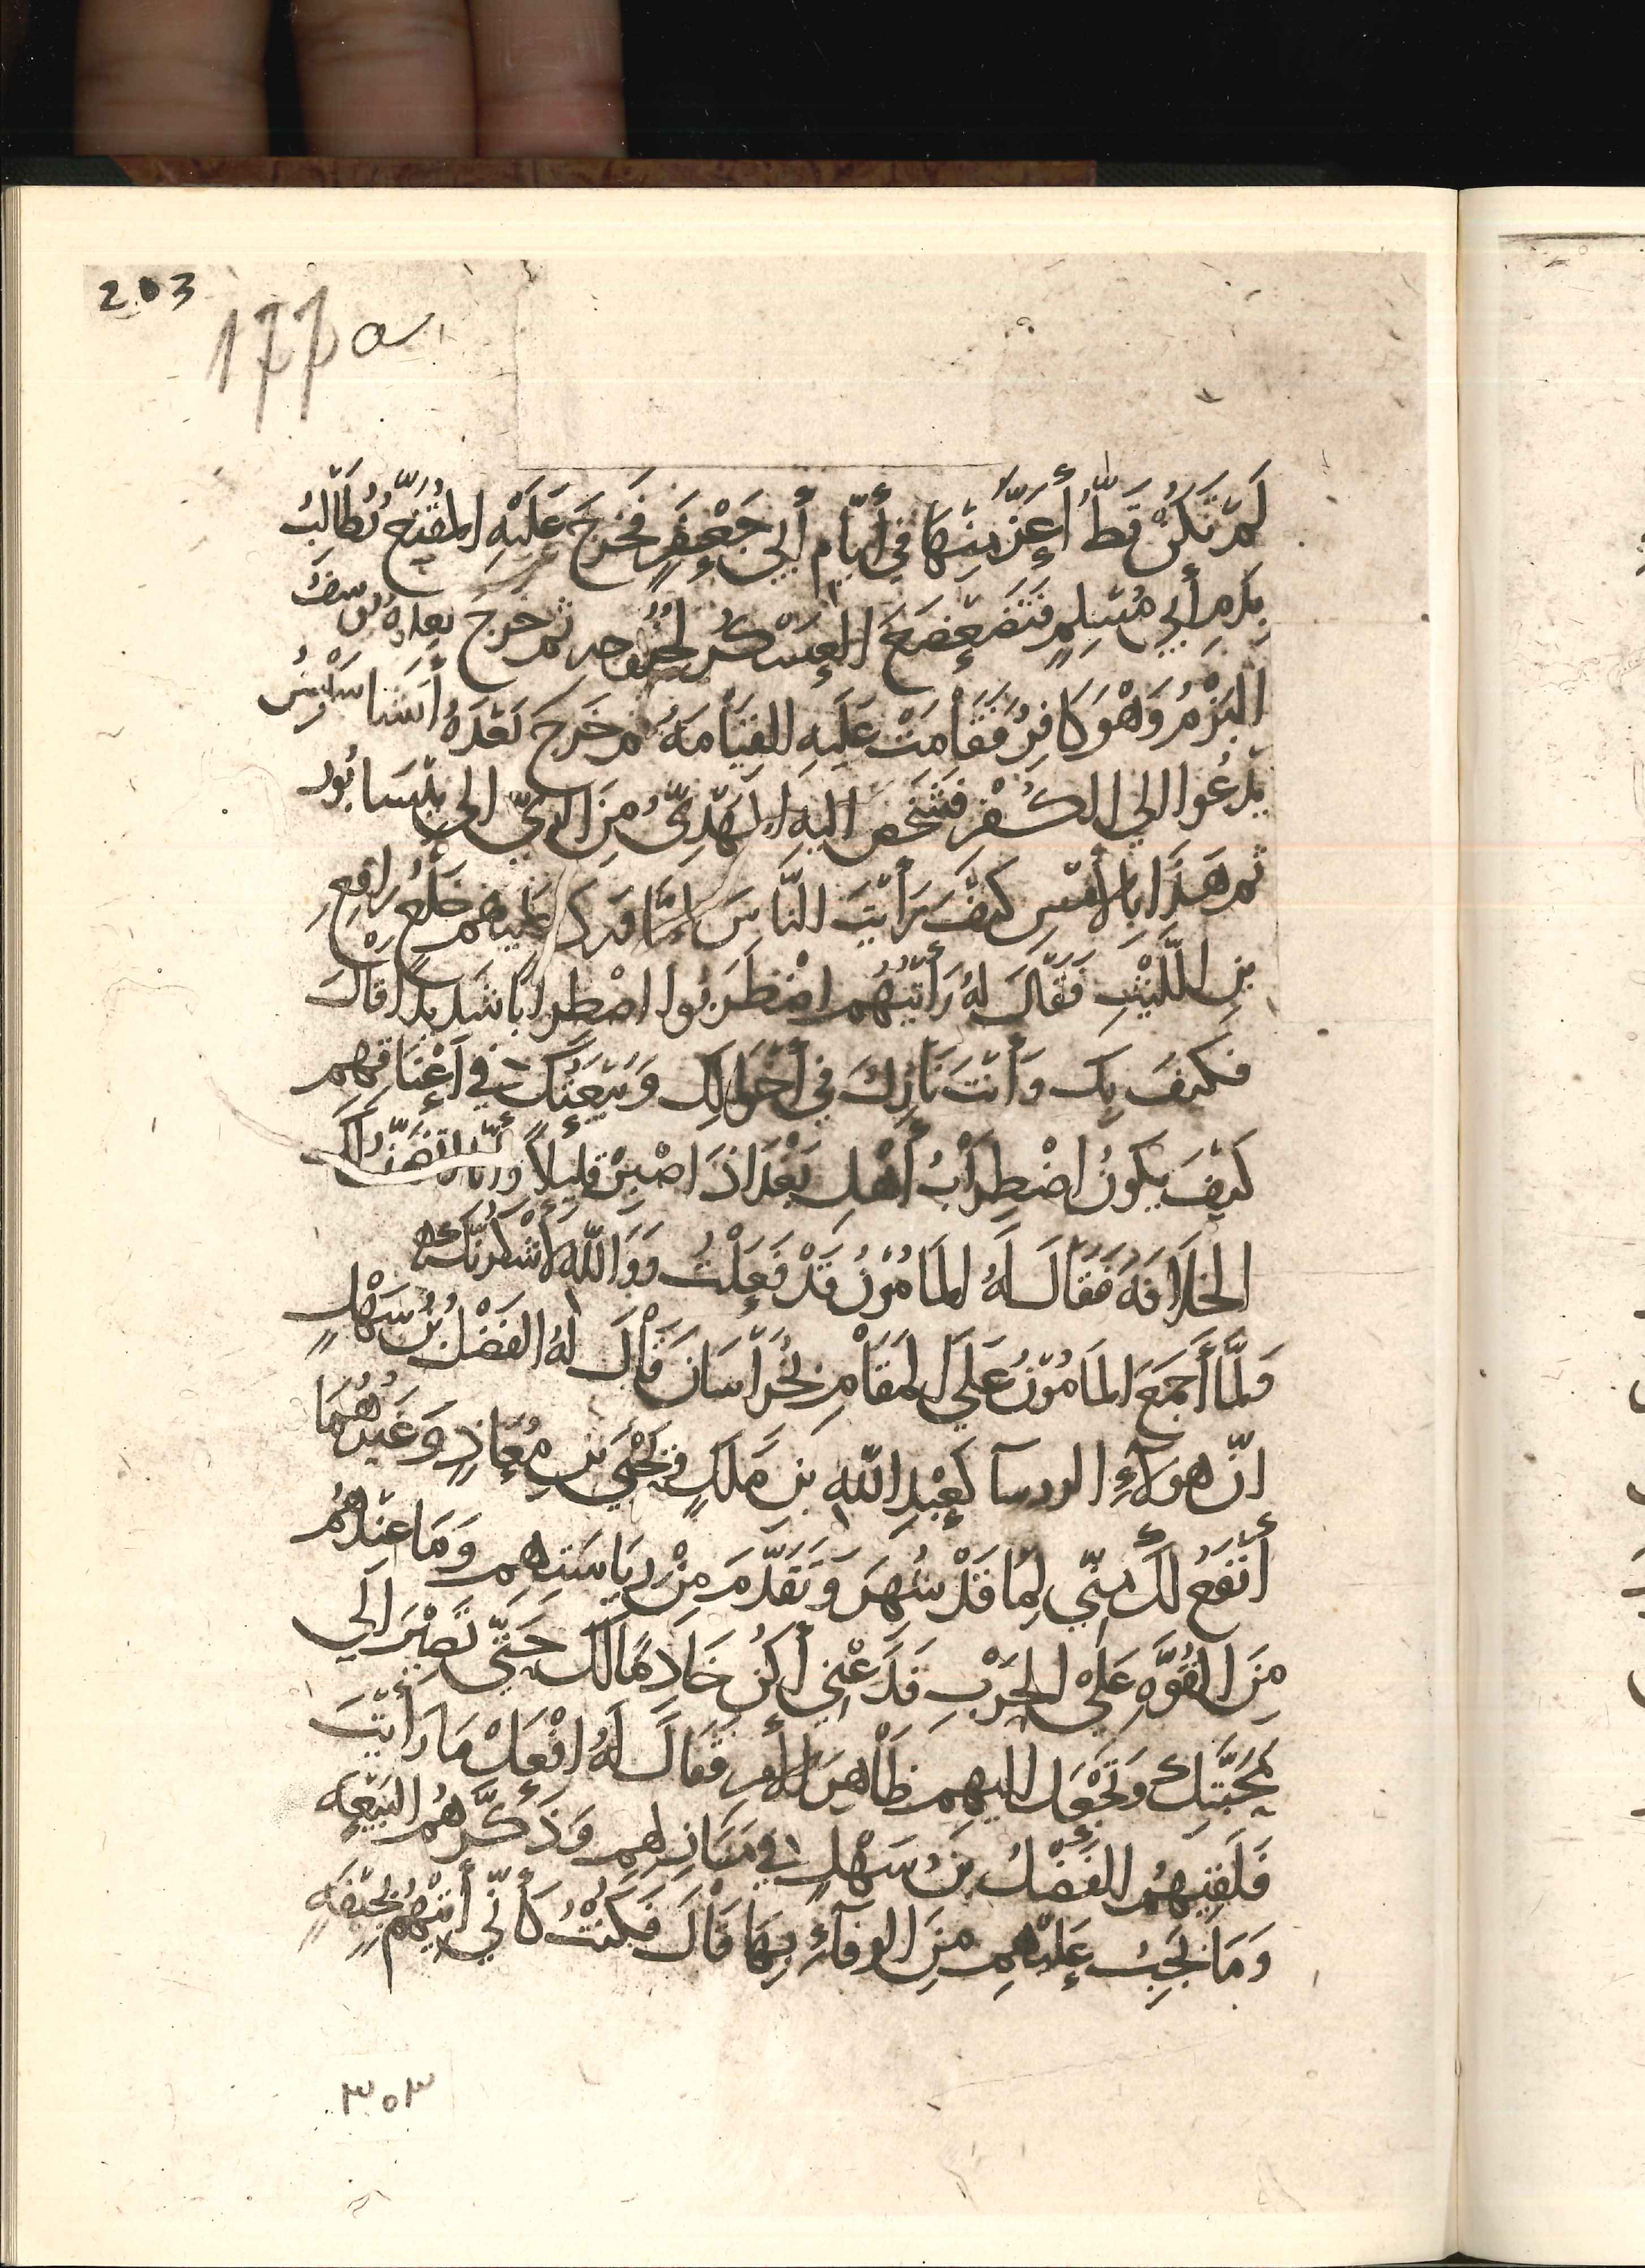 203
177 a
لَمْ تَكُنْ قَطُّ أَعَزَّ مِنْهَا فِي أَيَّامِ أَبِي جَعْفَرٍ فَخَرَجَ عَلَيْهِ المُقَنَّعُ يُطَالِبُ
بِدَمِ أَبِي مُسْلِمٍ فَتَضَعْضَعَ العَسْكَرُ لخروجه ثم خَرَجَ بعده يوسف
البَرْمُ وَهُوَ كَافِرٌ فَقَامَتْ عَلَيْهِ القِيَامَةُ ثم خَرَجَ بَعْدَهُ أستاسيس
يَدْعُوا الي الكُفْرِ فَشَخَصَ اليهِ المَهْدِيُّ مِنَ الرَّيِّ الي نَيْسَابُور
ثم هَذَا بِالأَمْسِ كَيْفَ رَأَيْتَ النَّاسَ لَمَّا وَرَدَ عَلَيْهِم خَلْعُ رَافِعِ
بنِ اللَّيْثِ فَقَالَ لهُ رَأَيْتُهُم اضْطَرَبُوا اضْطِرَابًا شَدِيدًا قَالَ
فكَيفَ بِكَ وَأَنْتَ نَازِلٌ في أَخْوَالِكَ وَبَيْعَتُكَ في أَعْنَاقِهِم
كَيْفَ يَكُونُ اضْطِرَابُ أَهْلِ بَغْدَاذَ اصْبِرْ قَلِيلاً وأنا أتضمّن لك
الخلافةَ فَقَالَ لَهُ المَامُونُ قَدْ فَعَلْتُ وَوَاللَّهِ لأَشْكُرَنَّكَ
وَلَمَّا أَجْمَعَ المَامُونُ عَلَي المَقَامِ بِخُرَاسَانَ قَالَ لهُ الفَضْلُ بْنُ سَهْلٍ
انّ هولاءِ الروسآ كَعَبْدِ اللَّهِ بنِ مَلِكٍ وَيَحْيَي بنِ مُعَاذٍ وَغَيْرِهُمَا
أَنْفَعُ لَكَ مِنِّي لِمَا قَدْ شُهِرَ وَتَقَدَّمَ مِنْ رِيَاسَتِهِم وَمَا عِنْدَهُم
مِنَ القُوَّةِ عَلَي الحَرْبِ فَدَعْنِي أَكُنْ خَادِمًا لَكَ حَتَّي تَصِيرَ الَي
مَحَبَّتِكَ وَتَجْعَل اليهِم ظَاهِرَ الأمرِ فَقَالَ لَهُ افْعَلْ مَا رَأَيْتَ
فَلَقِيَهُمُ الفَضْلُ بنُ سَهْلٍ فِي مَنَازِلِهِم وَذَكَّرَهُمُ البَيْعَةَ
وَمَا يَجِبُ عَلَيْهِم مِنَ الوفآءِ بِهَا قَالَ فَكُنْتُ كَأَنِّي أَتَيْتُهُمْ بِجِيفَةٍ
٣٥٣